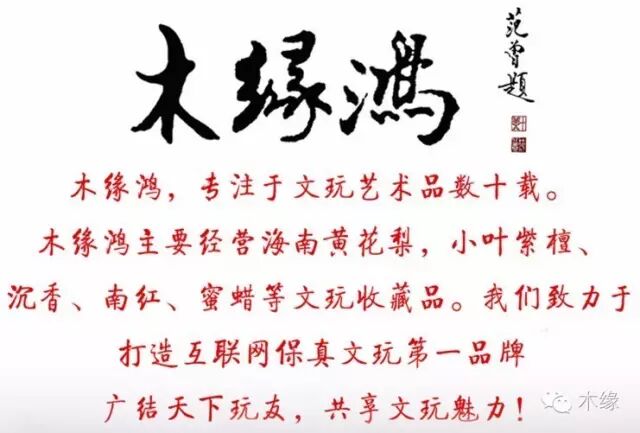 木缘鸿
范曾题
木缘鸿，专注于文玩艺术品数十载。
木缘鸿主要经营海南黄花梨，小叶紫檀、
沉香、南红、蜜蜡等文玩收藏品。我们致力于
打造互联网保真文玩第一品牌
广结天下玩友，共享文玩魅力！
木缘